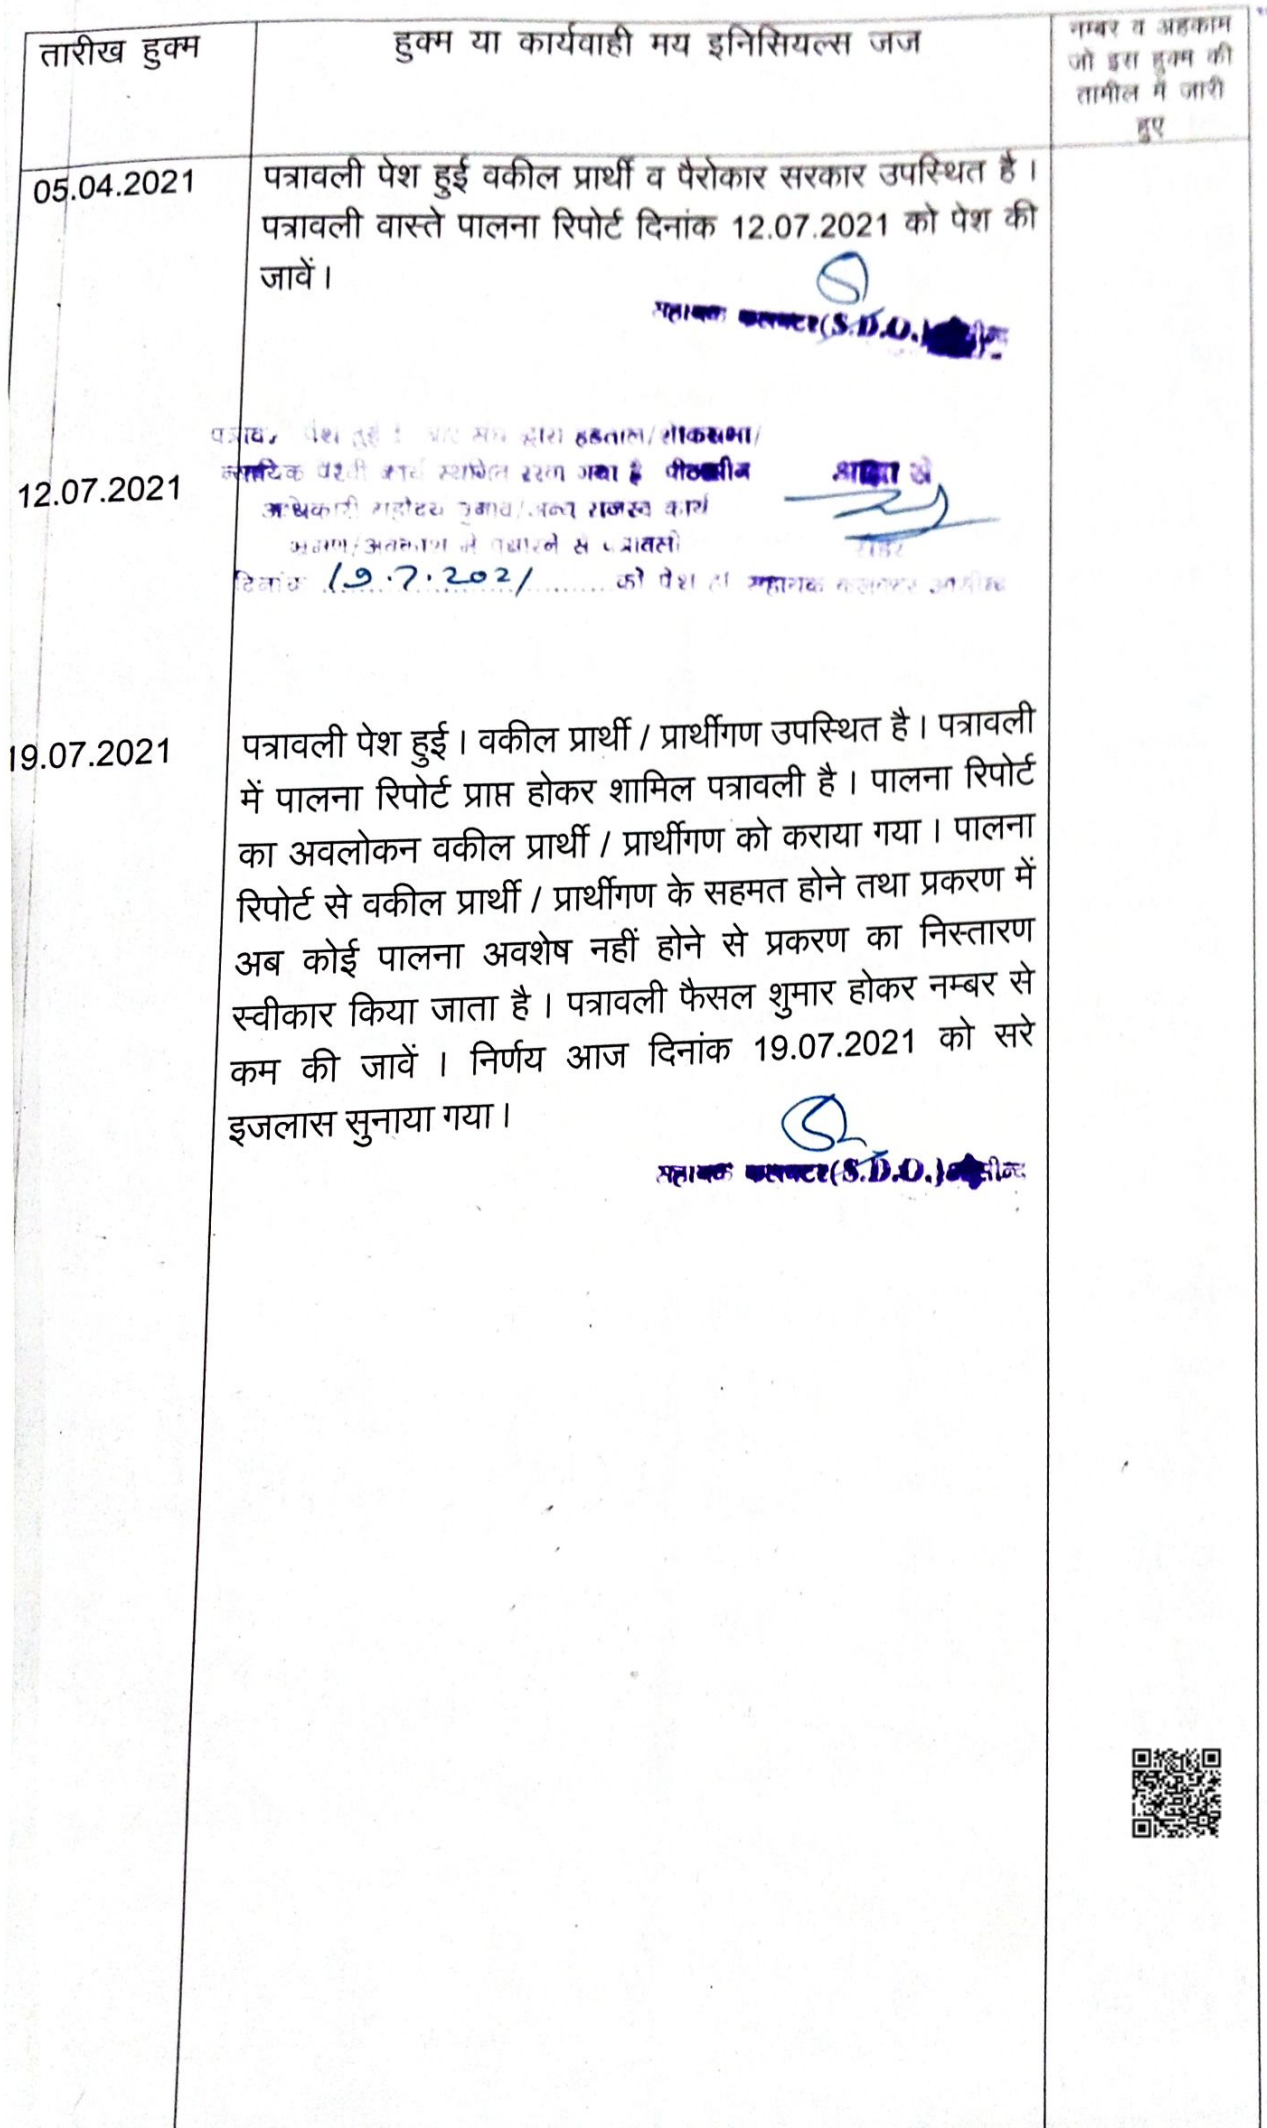 तारीख हुक्म
हुक्म या कार्यवाही मय इनिसियल्स जज
नम्बर व अहकाम
जो इस हुक्म की
तामील में जारी
हुए
05.04.2021
पत्रावली पेश हुई वकील प्रार्थी व पैरोकार सरकार उपस्थित है।
पत्रावली वास्ते पालना रिपोर्ट दिनांक 12.07.2021 को पेश की
जावें।
सहायक कलक्टर(S.D.O.)
12.07.2021
पेश हुई द्वारा हडताल/शोकसभा/
कार्य स्थगित रखा गया है पीठासीन
अधिकारी महोदय चुनाव/अन्य राजस्व कार्य
भ्रमण/अवकाश में पधारने से पत्रावली
दिनांक 19.7.2021 को पेश हो सहायक कलक्टर
आज्ञा से
रीडर
19.07.2021
पत्रावली पेश हुई। वकील प्रार्थी / प्रार्थीगण उपस्थित है। पत्रावली
में पालना रिपोर्ट प्राप्त होकर शामिल पत्रावली है। पालना रिपोर्ट
का अवलोकन वकील प्रार्थी / प्रार्थीगण को कराया गया। पालना
रिपोर्ट से वकील प्रार्थी / प्रार्थीगण के सहमत होने तथा प्रकरण में
अब कोई पालना अवशेष नहीं होने से प्रकरण का निस्तारण
स्वीकार किया जाता है। पत्रावली फैसल शुमार होकर नम्बर से
कम की जावें । निर्णय आज दिनांक 19.07.2021 को सरे
इजलास सुनाया गया।
सहायक कलक्टर(S.D.O.)